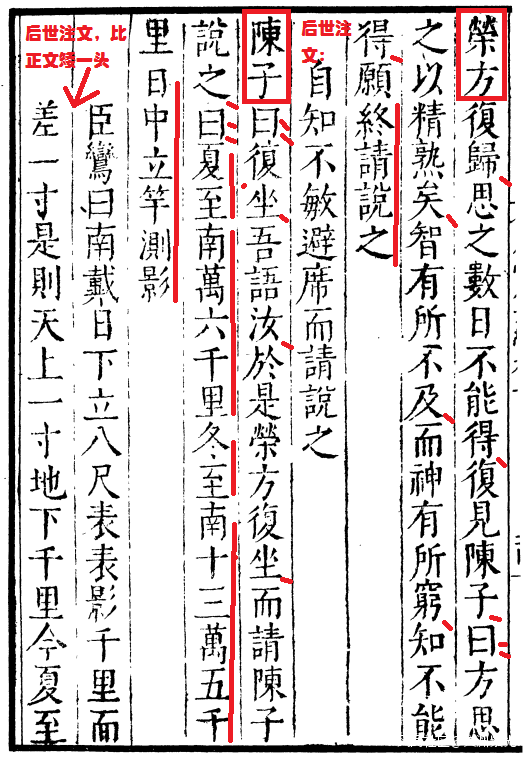 榮方復歸思之數日不能得復見陳子曰方思
之以精熟矣智有所不及而神有所窮知不能
得願終請說之
后世注
文：
自知不敏避席而請說之
陳子曰復坐吾語汝於是榮方復坐而請陳子
說之曰夏至南萬六千里冬至南十三萬五千
里日中立竿測影
后世注文，比
正文矮一头
臣鸞曰南戴日下立八尺表表影千里而
差一寸是則天上一寸地下千里今夏至